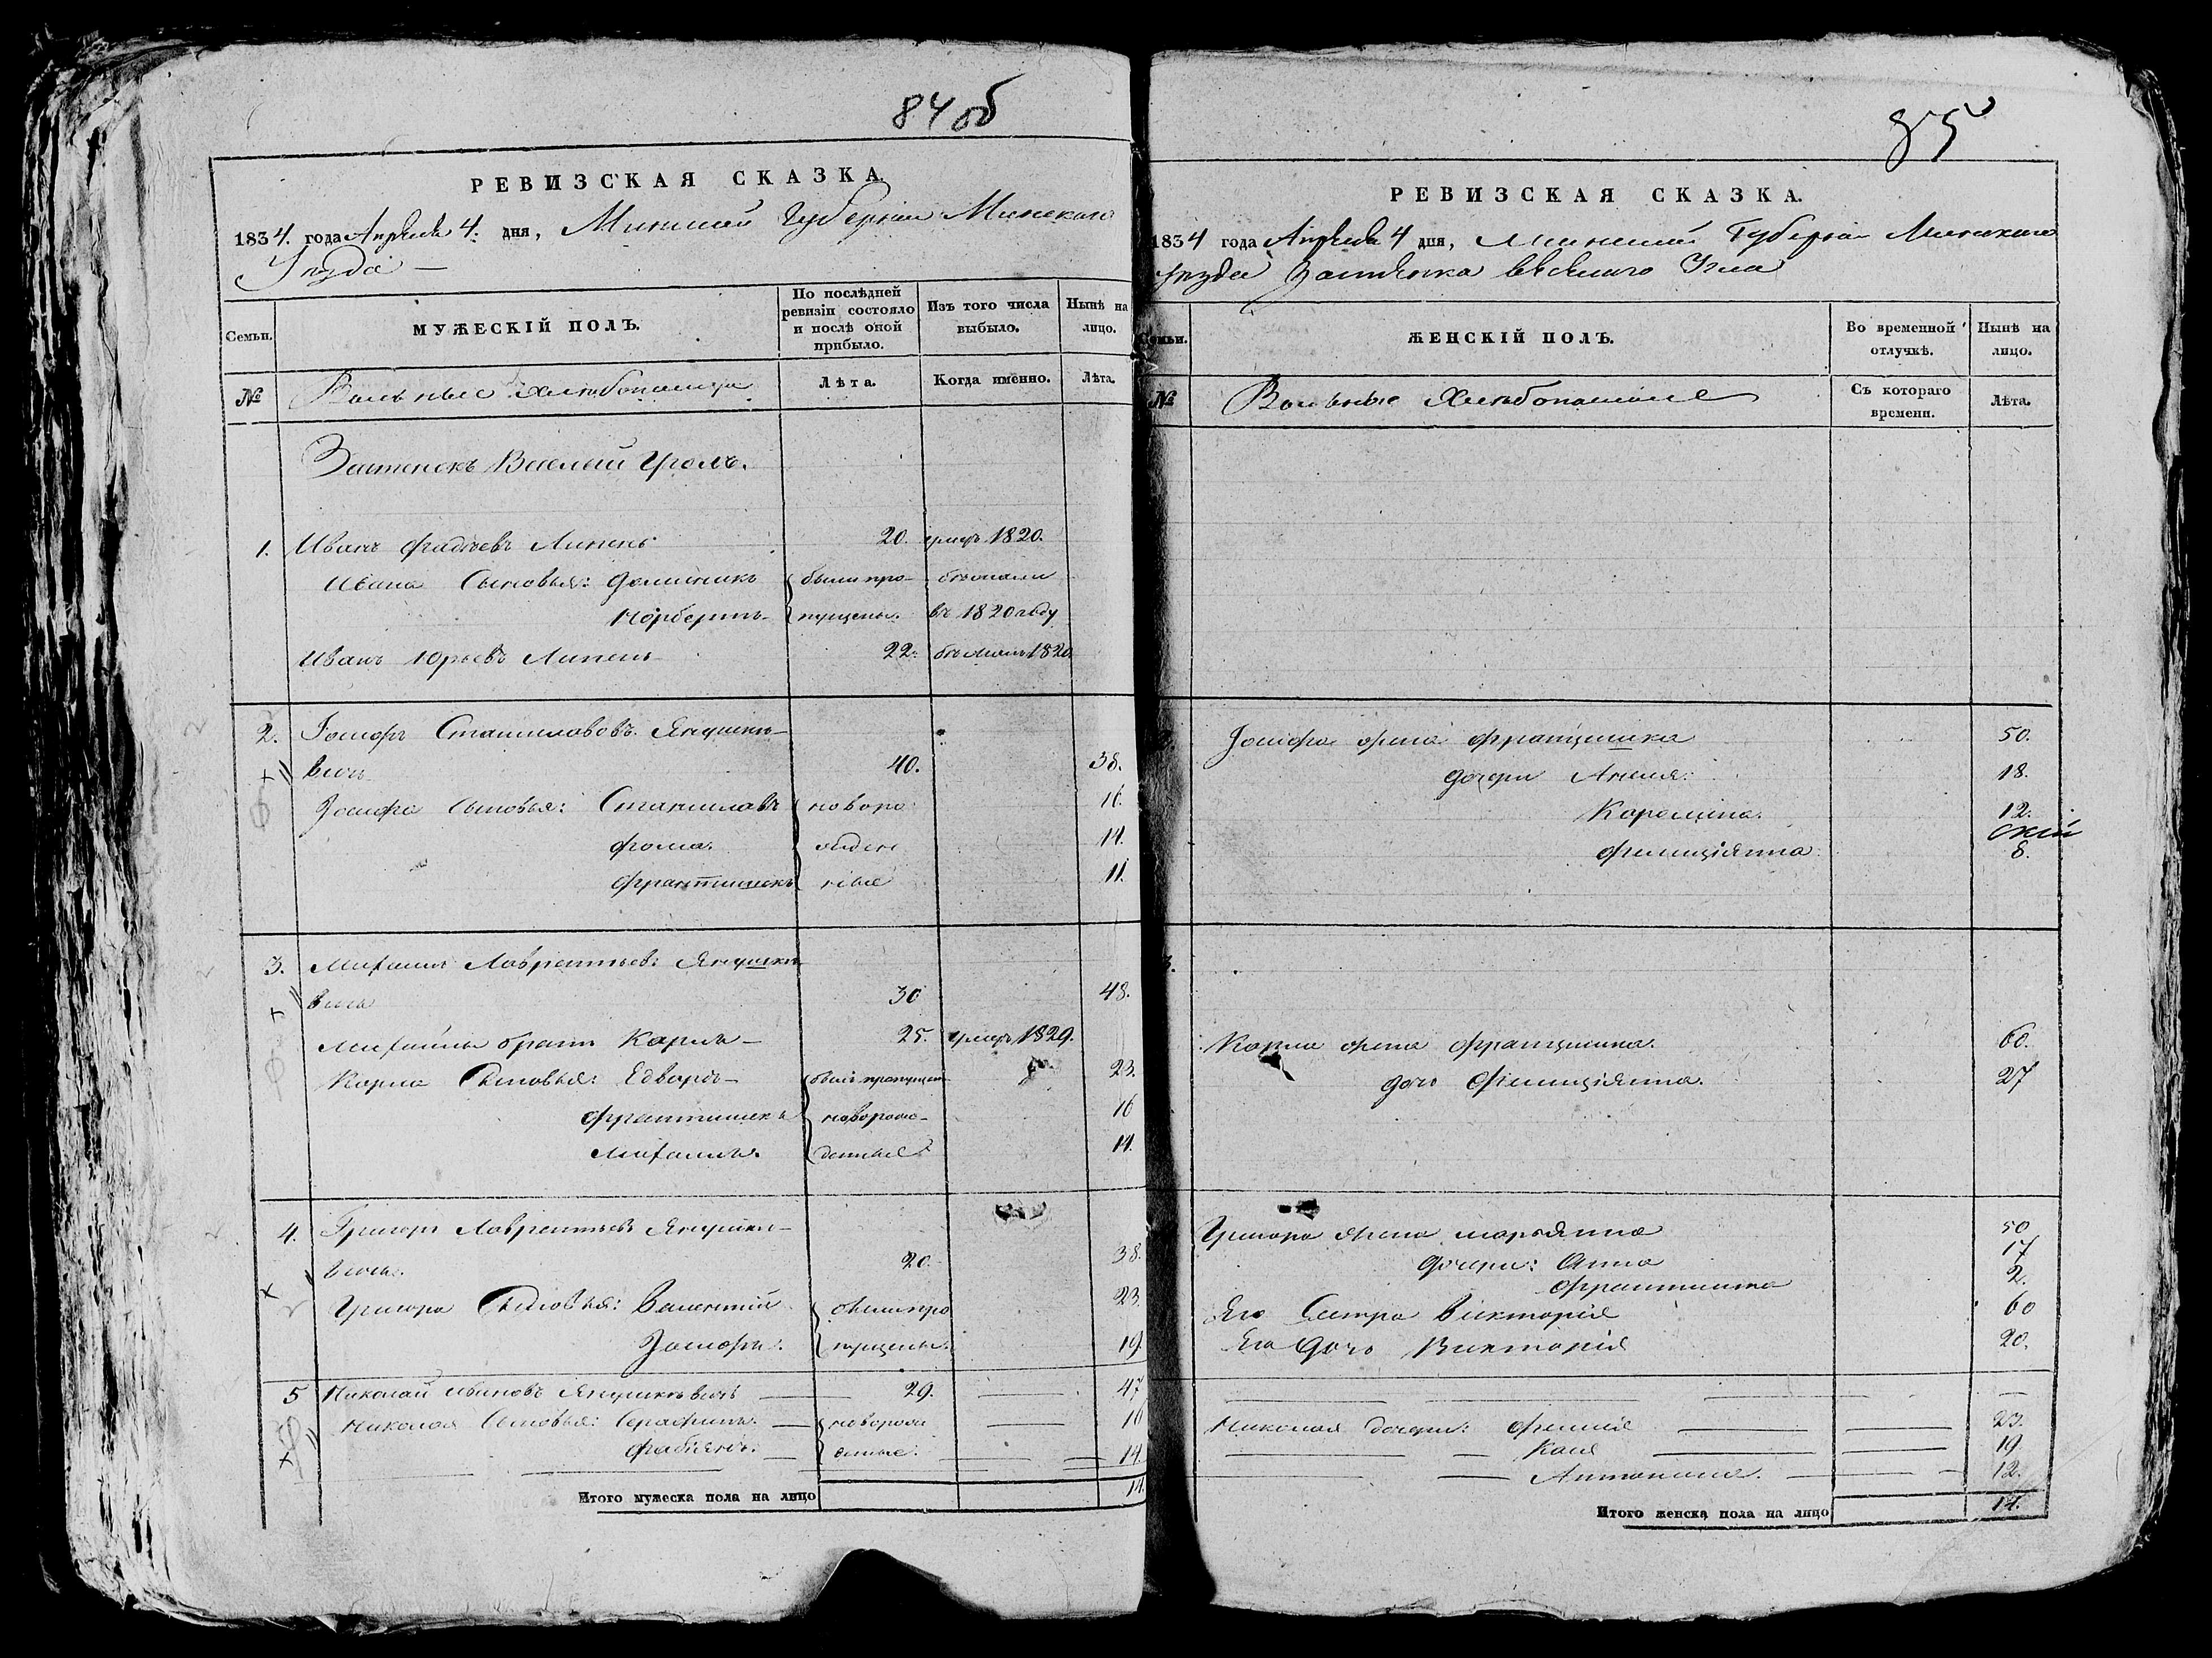 84 об
РЕВИЗСКАЯ СКАЗКА.
1834. года Апреля 4. дня, Минской Губернии Минскаго
Уезда —
Семьи.
МУЖЕСКІЙ ПОЛЪ.
По послѣдней ревизіи состояло и послѣ оной прибыло.
Изъ того числа выбыло.
Нынѣ на лицо.
№
Вольные хлебопашцы
Лѣта.
Когда именно.
Лѣта.
Застенокъ Веселый
1. Иванъ Фадеевъ Липень 20. умеръ 1820.
Ивана Сыновья: Доминикъ были про- бежали
Норбертъ пущены. въ 1820 году
Иванъ Юрьевъ Липень 22. бежалъ 1820.
2. Іосифъ Станиславовъ Янушке-
вичъ 40. 38.
Іосифа Сыновья: Станиславъ новоро 16.
Фома. жден 14.
Франтишекъ ные 11.
3. Михаилъ Лаврентьевъ Янушке
вичъ 30 48.
Михайлы братъ Карлъ — 25. умеръ 1829.
Карла Сыновья: Едвардъ — былъ пропущен 23.
Франтишекъ новорож- 16
Михаилъ. денные 14.
4. Григоръ Лаврентьевъ Янушке-
вичъ. 20. 38.
Григора Сыновья: Валентій были про 23.
Іосифъ. пущены. 19.
5 Николай Ивановъ Янушкевичъ 29. 47
Николая Сыновья: Серафинъ. новорож 16
Фабіянъ. денные. 14.
Итого мужеска пола на лицо 14.
85
РЕВИЗСКАЯ СКАЗКА.
1834 года Апреля 4 дня, Минской Губерніи Минскаго
Уезда Застенка Веселаго Угла
Семьи.
ЖЕНСКІЙ ПОЛЪ.
Во временной отлучкѣ.
Нынѣ на лицо.
№
Вольные Хлебопашцы
Съ котораго времени.
Лѣта.
2. Іосифа жена Францишка 50.
дочери Анеля. 18.
Каролина. 12.
Фелиціянна 8.
3.
Карла жена Францишка. 60.
дочь Фелиціянна. 27
Григора жена Марьянна 50
дочери: Анна 17
Франтишка 2.
Его Сестра Викторія 60
Его дочь Викторія 20.
Николая дочери: 23.
19.
Антонина. 12.
Итого женска пола на лицо 14.